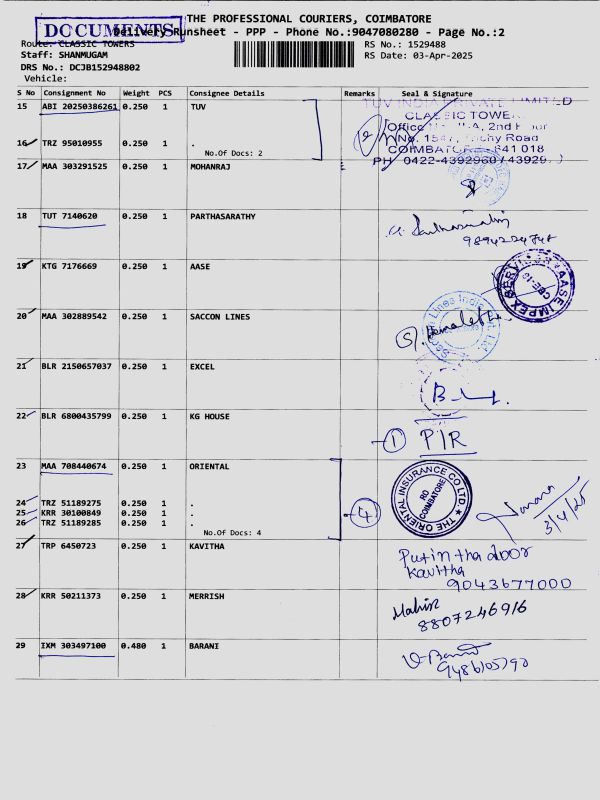 THE PROFESSIONAL COURIERS, COIMBATORE
DOCUMENTS
Delivery Runsheet - PPP - Phone No.:9047080280 - Page No.:2
Route: CLASSIC TOWERS
RS No.: 1529488
Staff: SHANMUGAM
RS Date: 03-Apr-2025
DRS No.: DCJB152948802
Vehicle:
S No Consignment No Weight PCS Consignee Details Remarks Seal & Signature
15 ABI 20250386261 0.250 1 TUV
TUV INDIA PRIVATE LIMITED
CLASSIC TOWER
Office 2nd Floor
16 TRZ 95010955 0.250 1 .
No. 1547, Trichy Road
COIMBATORE 641 018
No.Of Docs: 2
PH 0422-4392960 / 43929
17 MAA 303291525 0.250 1 MOHANRAJ
18 TUT 7140620 0.250 1 PARTHASARATHY
9894224748
19 KTG 7176669 0.250 1 AASE
AASE IMPEX SERVICES CBE-18
20 MAA 302889542 0.250 1 SACCON LINES
Saccon Lines India Pvt. Ltd.
21 BLR 2150657037 0.250 1 EXCEL
22 BLR 6800435799 0.250 1 KG HOUSE
1 PIR
23 MAA 708440674 0.250 1 ORIENTAL
THE ORIENTAL INSURANCE CO LTD RO COIMBATORE
24 TRZ 51189275 0.250 1 .
25 KRR 30100849 0.250 1 .
4
26 TRZ 51189285 0.250 1 .
3/4/25
No.Of Docs: 4
27 TRP 6450723 0.250 1 KAVITHA
Put in tha door
Kavitha
9043677000
28 KRR 50211373 0.250 1 MERRISH
8807246916
29 IXM 303497100 0.480 1 BARANI
9486105790